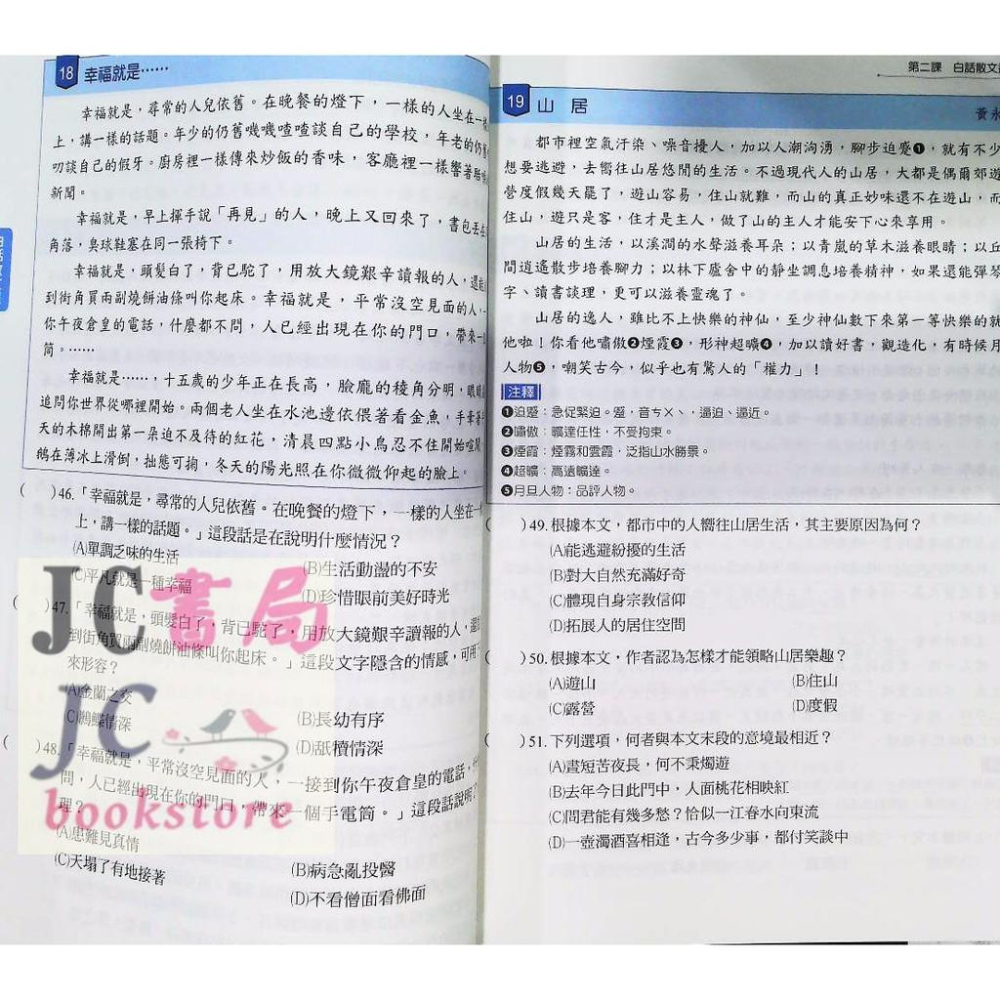 18 幸福就是……
幸福就是，尋常的人兒依舊。在晚餐的燈下，一樣的人坐在一
上，講一樣的話題。年少的仍舊嘰嘰喳喳談自己的學校，年老的仍舊
叨談自己的假牙。廚房裡一樣傳來炒飯的香味，客廳裡一樣響著
新聞。
幸福就是，早上揮手說「再見」的人，晚上又回來了，書包丟在
角落，臭球鞋塞在同一張椅下。
幸福就是，頭髮白了，背已駝了，用放大鏡艱辛讀報的人，還能
到街角買兩副燒餅油條叫你起床。幸福就是，平常沒空見面的人，
你午夜倉皇的電話，什麼都不問，人已經出現在你的門口，帶來一
筒。……
幸福就是……，十五歲的少年正在長高，臉龐的稜角分明，眼睛
追問你世界從哪裡開始。兩個老人坐在水池邊依偎著看金魚，手牽著
天的木棉開出第一朵迫不及待的紅花，清晨四點小鳥忍不住開始喧
鵝在薄冰上滑倒，拙態可掬，冬天的陽光照在你微微仰起的臉上。
( )46.「幸福就是，尋常的人兒依舊。在晚餐的燈下，一樣的人坐在一
上，講一樣的話題。」這段話是在說明什麼情況？
(A)單調乏味的生活
(B)生活動盪的不安
(C)平凡就是一種幸福
(D)珍惜眼前美好時光
( )47.「幸福就是，頭髮白了，背已駝了，用放大鏡艱辛讀報的人，還
到街角買兩副燒餅油條叫你起床。」這段文字隱含的情感，可用
來形容？
(A)金蘭之交
(B)長幼有序
(C)鶼鰈情深
(D)舐犢情深
( )48.「幸福就是，平常沒空見面的人，一接到你午夜倉皇的電話，
問，人已經出現在你的門口，帶來一個手電筒。」這段話說明
理？
(A)患難見真情
(B)病急亂投醫
(C)天塌了有地接著
(D)不看僧面看佛面
JC書局
JC
bookstore
第二課 白話散文
19 山 居
黃永
都市裡空氣汙染、噪音擾人，加以人潮洶湧，腳步迫蹙❶，就有不少
想要逃避，去嚮往山居悠閒的生活。不過現代人的山居，大都是偶爾郊遊
營度假幾天罷了，遊山容易，住山就難，而山的真正妙味還不在遊山，而
住山，遊只是客，住才是主人，做了山的主人才能安下心來享用。
山居的生活，以溪澗的水聲滋養耳朵；以青嵐的草木滋養眼睛；以丘
間逍遙散步培養腳力；以林下廬舍中的靜坐調息培養精神，如果還能彈琴
字、讀書談理，更可以滋養靈魂了。
山居的逸人，雖比不上快樂的神仙，至少神仙數下來第一等快樂的就
他啦！你看他嘯傲❷煙霞❸，形神超曠❹，加以讀好書，觀造化，有時候月
人物❺，嘲笑古今，似乎也有驚人的「權力」！
注釋
❶迫蹙：急促緊迫。蹙，音ㄘㄨˋ，逼迫、逼近。
❷嘯傲：曠達任性，不受拘束。
❸煙霞：煙霧和雲霞，泛指山水勝景。
❹超曠：高遠曠達。
❺月旦人物：品評人物。
)49.根據本文，都市中的人嚮往山居生活，其主要原因為何？
(A)能逃避紛擾的生活
(B)對大自然充滿好奇
(C)體現自身宗教信仰
(D)拓展人的居住空間
)50.根據本文，作者認為怎樣才能領略山居樂趣？
(A)遊山
(B)住山
(C)露營
(D)度假
)51.下列選項，何者與本文末段的意境最相近？
(A)晝短苦夜長，何不秉燭遊
(B)去年今日此門中，人面桃花相映紅
(C)問君能有幾多愁？恰似一江春水向東流
(D)一壺濁酒喜相逢，古今多少事，都付笑談中